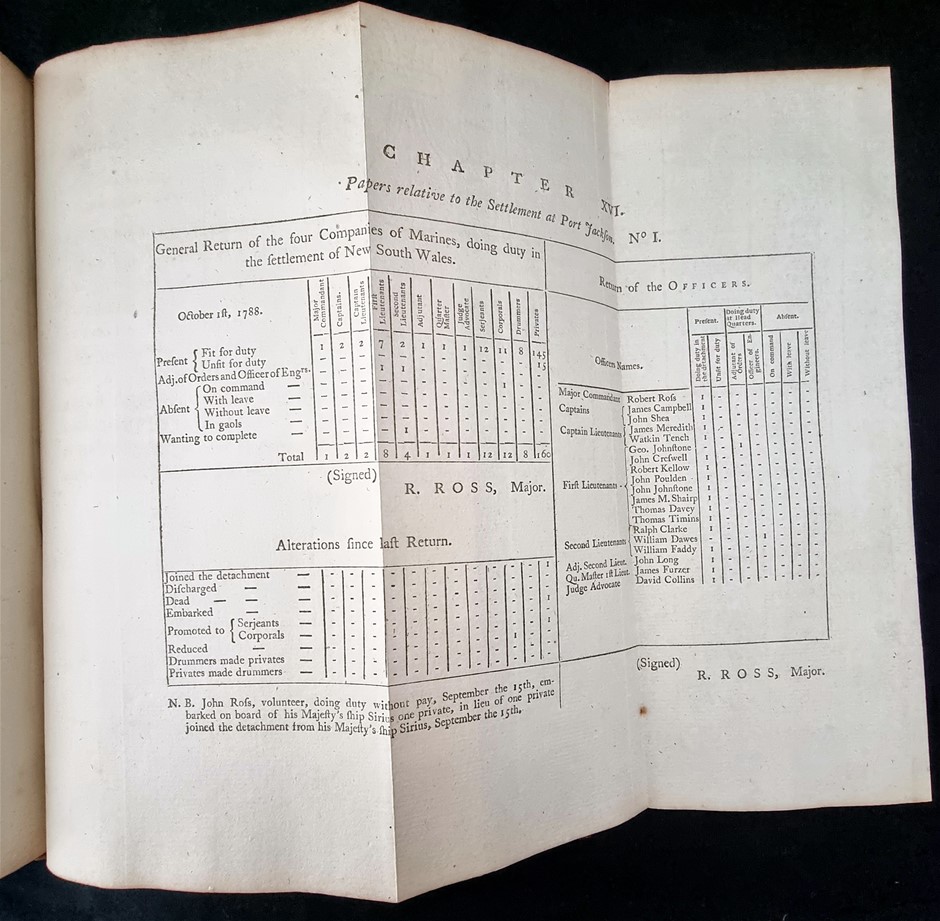 CHAPTER XVI.
Papers relative to the Settlement at Port Jackson.
N° I.
General Return of the four Companies of Marines, doing duty in
the ſettlement of New South Wales.
October 1ſt, 1788. Major Commandant Captains. Captain Lieutenants Firſt Lieutenants Second Lieutenants Adjutant Quarter Maſter Judge Advocate Serjeants Corporals Drummers Privates
Preſent { Fit for duty 1 2 2 7 2 1 1 1 12 11 8 145
Unfit for duty - - - - - - - - - - - 15
Adj. of Orders and Officer of Engrs. - - - 1 1 - - - - - - -
Abſent { On command — - - - - - - - - - 1 - -
With leave — - - - - - - - - - - - -
Without leave — - - - - - - - - - - - -
In gaols — - - - - - - - - - - - -
Wanting to complete — - - - - 1 - - - - - - -
Total 1 2 2 8 4 1 1 1 12 12 8 160
(Signed)
R. ROSS, Major.
Alterations ſince laſt Return.
Joined the detachment — - - - - - - - - - - - 1
Diſcharged — — - - - - - - - - - - - -
Dead — — — - - - - - - - - - - - 1
Embarked — — - - - - - - - - - - -
Promoted to { Serjeants — - - - - - - - - - - - 1
Corporals — - - - - - - - - - 1 -
Reduced — — - - - - - - - - - - - -
Drummers made privates — - - - - - - - - - - - -
Privates made drummers — - - - - - - - - - - - -
N. B. John Roſs, volunteer, doing duty without pay, September the 15th, em-
barked on board of his Majeſty's ſhip Sirius one private, in lieu of one private
joined the detachment from his Majeſty's ſhip Sirius, September the 15th.
Return of the OFFICERS.
Preſent. Doing duty at Head Quarters. Abſent.
Officers Names. Doing duty in the detachment Unfit for duty Adjutant of Orders Officer of Engineers. On command With leave Without leave
Major Commandant Robert Roſs 1 - - - - - -
Captains { James Campbell 1 - - - - - -
John Shea 1 - - - - - -
Captain Lieutenants { James Meredith 1 - - - - - -
Watkin Tench 1 - - - - - -
Firſt Lieutenants - { Geo. Johnſtone - - 1 - - - -
John Creſwell 1 - - - - - -
Robert Kellow 1 - - - - - -
John Poulden 1 - - - - - -
John Johnſtone 1 - - - - - -
James M. Shairp 1 - - - - - -
Thomas Davey 1 - - - - - -
Thomas Timins 1 - - - - - -
Second Lieutenants { Ralph Clarke 1 - - - - - -
William Dawes - - - 1 - - -
William Faddy 1 - - - - - -
Adj. Second Lieut. John Long 1 - - - - - -
Qu. Maſter 1ſt Lieut. James Furzer 1 - - - - - -
Judge Advocate David Collins 1 - - - - - -
(Signed)
R. ROSS, Major.